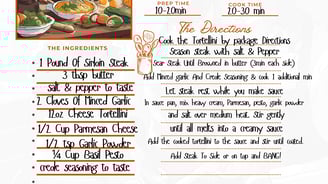 PREP TIME
10-20min
COOK TIME
20-30 min
THE INGREDIENTS
1 Pound Of Sirloin Steak
3 tbsp butter
salt & pepper to taste
2 Cloves Of Minced Garlic
12oz Cheese Tortellini
1/2 Cup Parmesan Cheese
1/2 tsp Garlic Powder
1/4 Cup Basil Pesto
creole seasoning to taste
The Directions
Cook the Tortellini by package Directions
Season steak with salt & Pepper
Sear Steak Until Browned in butter (3min each side)
Add Minced garlic And Creole Seasoning & cook 1 additional min
Let steak rest while you make sauce
In sauce pan, mix heavy cream, Parmesan, pesto, garlic powder
and salt over medium heat. Stir gently
until all melts into a creamy sauce
Add the cooked tortellini to the sauce and stir until coated.
Add Steak To Side or on top and BANG!